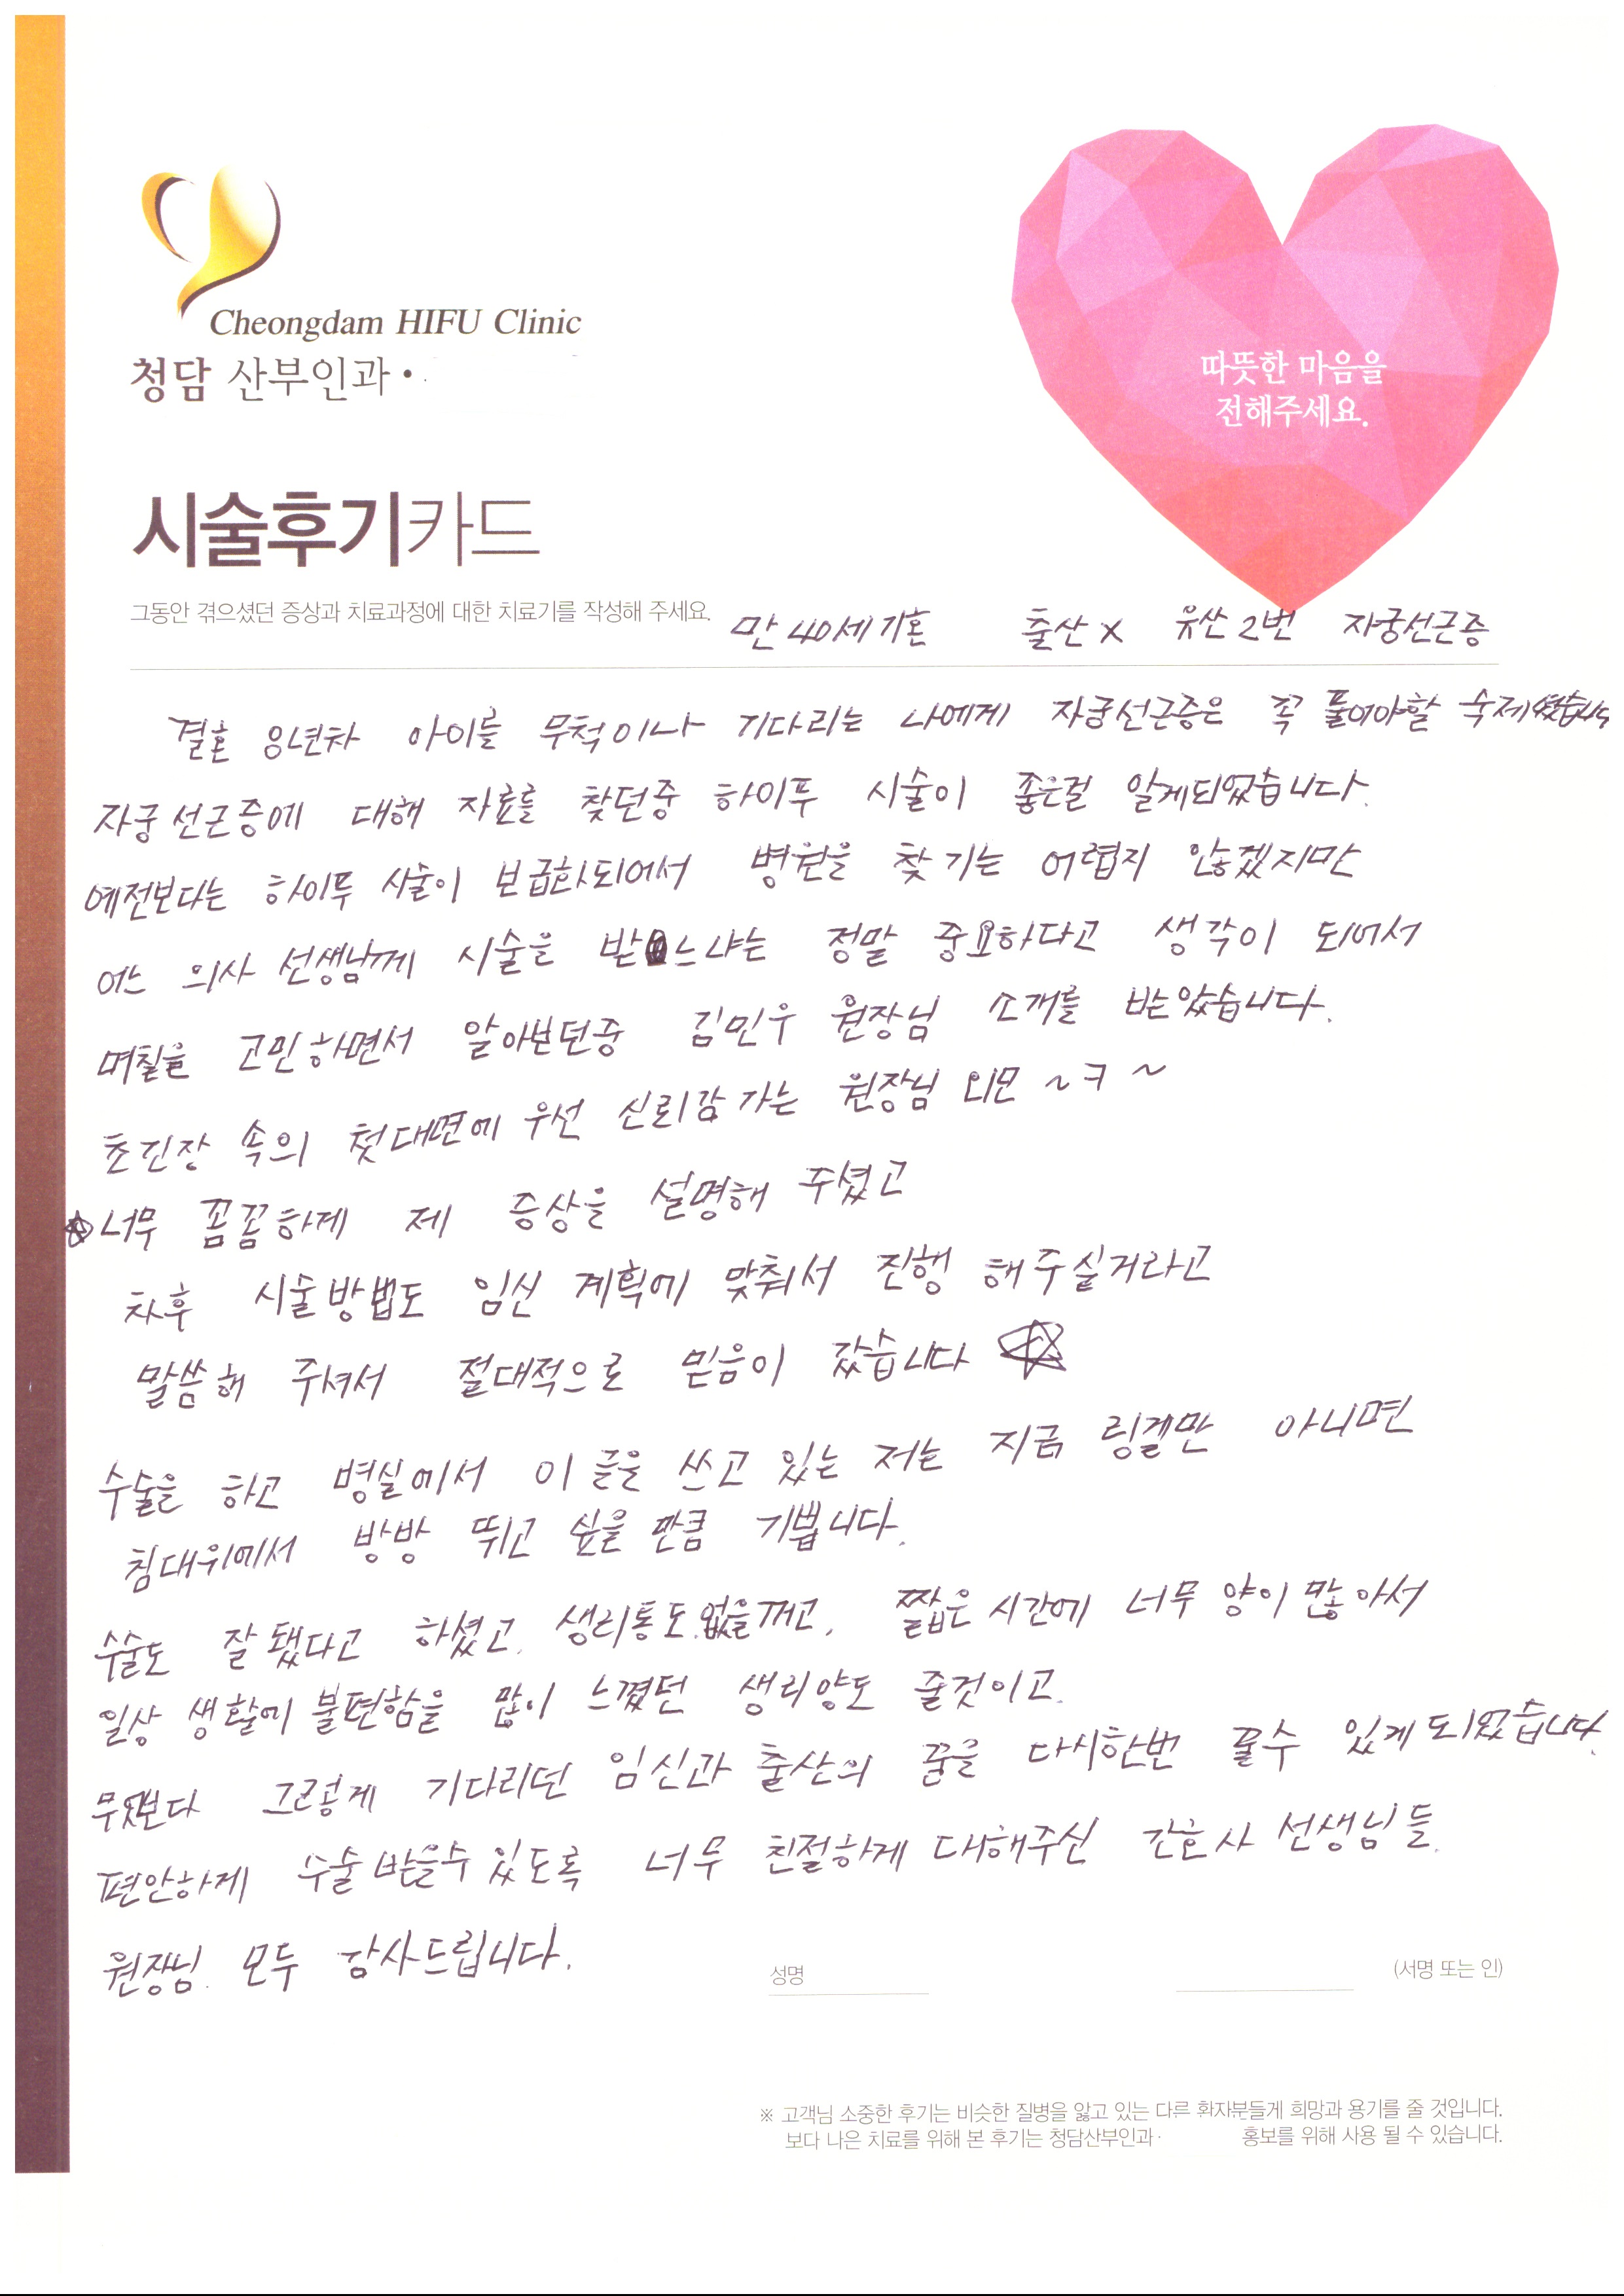 Cheongdam HIFU Clinic
청담 산부인과 ·
따뜻한 마음을
전해주세요.
시술후기카드
그동안 겪으셨던 증상과 치료과정에 대한 치료기를 작성해 주세요.
만 40세 기혼 출산 X 유산 2번 자궁선근증
결혼 8년차 아이를 무척이나 기다리는 나에게 자궁선근증은 꼭 풀어야할 숙제였습니다
자궁선근증에 대해 자료를 찾던중 하이푸 시술이 좋은걸 알게되었습니다.
예전보다는 하이푸 시술이 보급화되어서 병원을 찾기는 어렵지 않겠지만
어느 의사 선생님께 시술을 받느냐는 정말 중요하다고 생각이 되어서
며칠을 고민하면서 알아보던중 김민우 원장님 소개를 받았습니다.
초긴장 속의 첫대면에 우선 신뢰감 가는 원장님 외모 ~ㅋ~
☆너무 꼼꼼하게 제 증상을 설명해 주셨고
차후 시술방법도 임신 계획에 맞춰서 진행 해주실거라고
말씀해 주셔서 절대적으로 믿음이 갔습니다 ☆
수술을 하고 병실에서 이 글을 쓰고 있는 저는 지금 링겔만 아니면
침대위에서 방방 뛰고 싶을 만큼 기쁩니다.
수술도 잘 됐다고 하셨고, 생리통도 없을꺼고, 짧은 시간에 너무 양이 많아서
일상 생활에 불편함을 많이 느꼈던 생리양도 줄것이고.
무엇보다 그렇게 기다리던 임신과 출산의 꿈을 다시한번 꿀수 있게 되었습니다.
편안하게 수술 받을수 있도록 너무 친절하게 대해주신 간호사 선생님들.
원장님. 모두 감사드립니다.
성명 (서명 또는 인)
※ 고객님 소중한 후기는 비슷한 질병을 앓고 있는 다른 환자분들게 희망과 용기를 줄 것입니다.
보다 나은 치료를 위해 본 후기는 청담산부인과· 홍보를 위해 사용 될 수 있습니다.